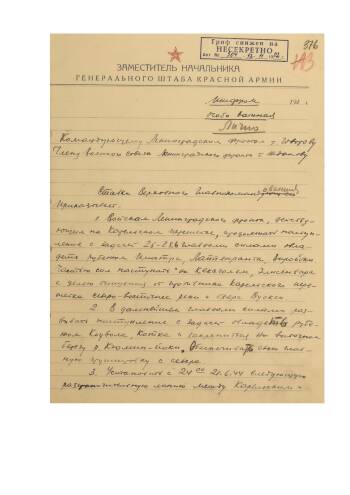 Гриф снижен на
НЕСЕКРЕТНО
376
ЗАМЕСТИТЕЛЬ НАЧАЛЬНИКА
ГЕНЕРАЛЬНОГО ШТАБА КРАСНОЙ АРМИИ
Шифром
особо важная
Лично
Командующему Ленинградским фронтом т. Говорову
Члену военного совета Ленинградского фронта т. Жданову
Ставка Верховного Главнокомандования
приказывает:
1. Войскам Ленинградского фронта, действу-
ющим на Карельском перешейке, продолжать наступ-
ление с задачей 26-28.6 главными силами овла-
деть рубежом Иматра, Лаппенранта, Виройоки
частью сил наступать на Кексгольм, Элисенвара
с целью очищения от противника Карельского пере-
шейка северо-восточнее реки и озера Вуокси
2. В дальнейшем главными силами раз-
вивать наступление с задачей овладеть рубе-
жом Коувола, Котка и закрепиться на восточном
берегу р. Кюмин-Йоки. Обеспечивать свою глав-
ную группировку с севера
3. Установить с 24 00 21.6.44 следующую
разграничительную линию между Карельским и